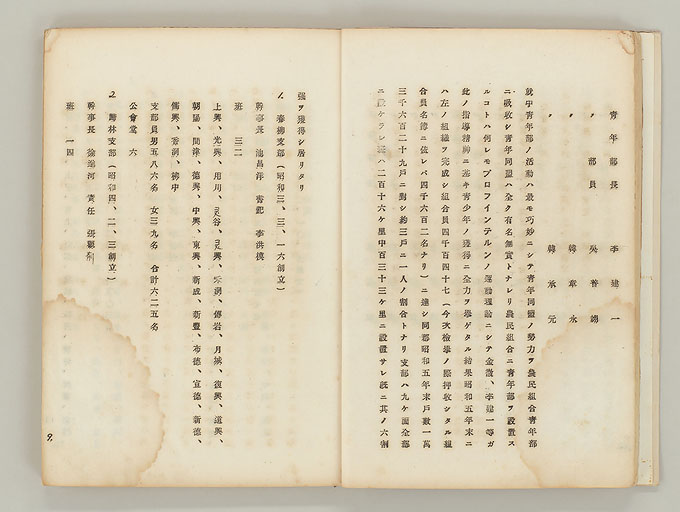 青年部長 李建一
〃 部員 吳 善 錫
〃 韓章永
〃 韓承元
就中青年部ノ活動ハ最モ巧妙ニシテ青年同盟ノ勢力ヲ農民組合青年部
ニ吸收シ青年同盟ハ全ク有名無實トナレリ農民組合ニ青年部ヲ設置ス
ルコトハ何レモプロフインテルンノ運動理論ニシテ金澈、李建一等ガ
此ノ指導精神ニ基キ青少年ノ獲得ニ全力ヲ擧ゲタル結果昭和五年末ニ
ハ左ノ組織ヲ完成シ組合員四千百四十七(今次檢擧ノ際押收シタル組
合員名簿ニ依レバ四千六百二名ナリ)ニ達シ同郡昭和五年末戶數一萬
三千六百二十九戶ニ對シ約三戶ニ一人ノ割合トナリ支部ハ九ケ面全部
ニ設ケラレ班ハ二百十六ケ里中百三十三ケ里ニ設置サレ既ニ其ノ六割
強ヲ獲得シ居リタリ
1. 春柳支部(昭和三、三、一六創立)
幹事長 池昌洋 書記 李洪模
班 三二
上興、光興、用川、灵谷、灵興、 傅岩、月城、復興、道興、
朝陽、間津、德興、中興、東興、新成、新豐、布德、宣德、新德、
儒興、 柳中
支部員男五八六名 女三九名 合計六二五名
公會堂 六
2. 歸林支部(昭和四、二、三創立)
幹事長 徐 河 責任 張
班 一四
9.